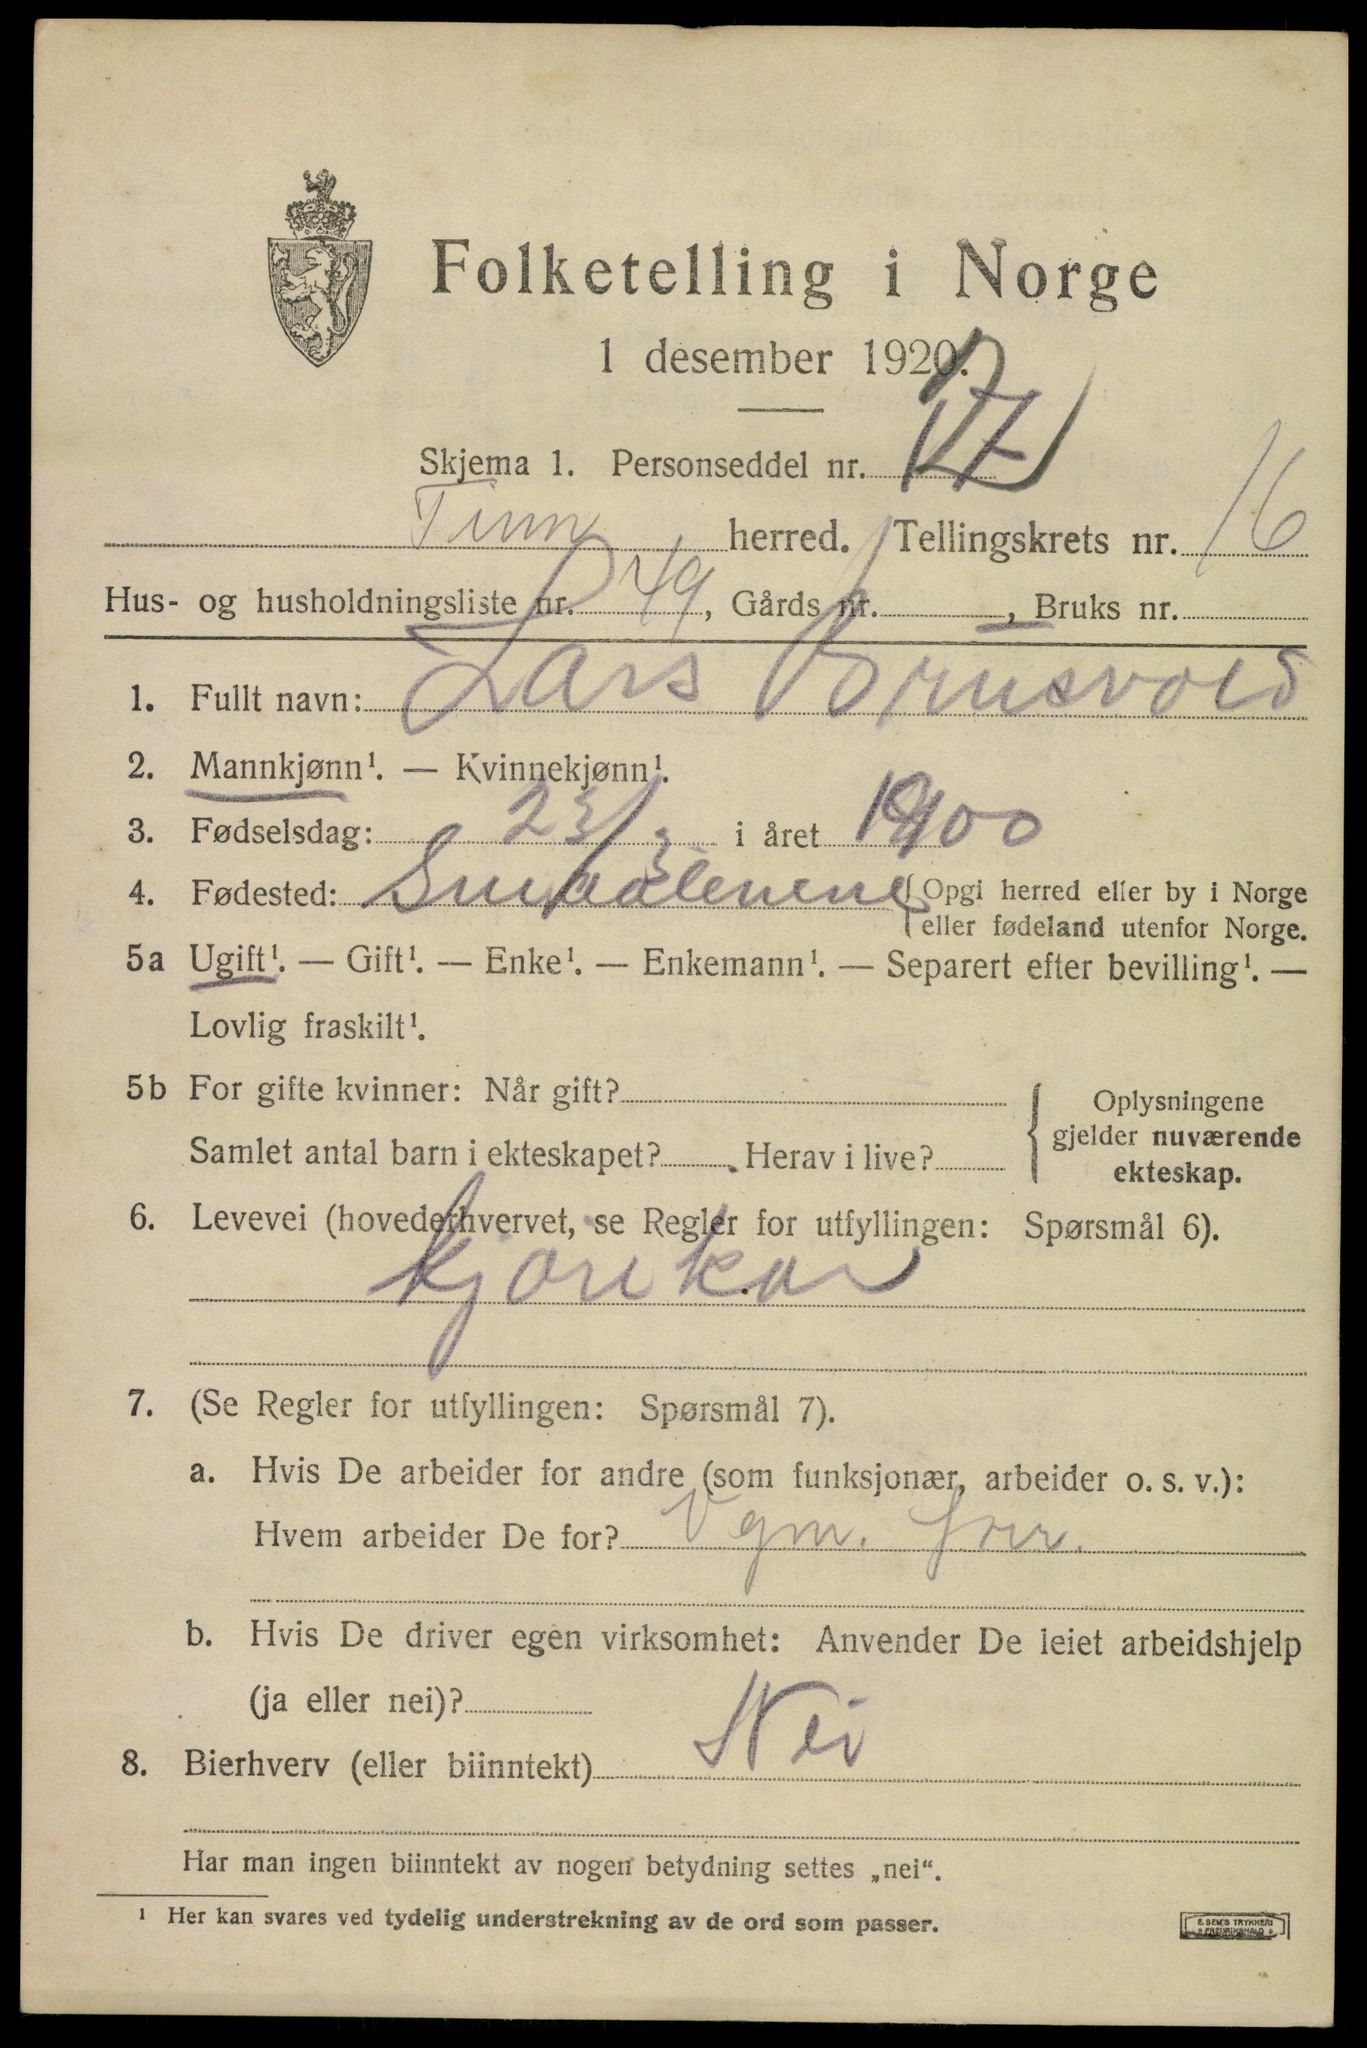 Folketelling i Norge
1 desember 1920.
Skjema 1. Personseddel nr.
Tinn herred. Tellingskrets nr. 16
Hus- og husholdningsliste nr. 49, Gårds nr. , Bruks nr.
1. Fullt navn: Lars Brusvold
2. Mannkjønn¹. — Kvinnekjønn¹.
3. Fødselsdag: 23/3 i året 1900
4. Fødested: Smaalenene {Opgi herred eller by i Norge
eller fødeland utenfor Norge.
5a Ugift¹. — Gift¹. — Enke¹. — Enkemann¹. — Separert efter bevilling¹. —
Lovlig fraskilt¹.
5b For gifte kvinner: Når gift?
Samlet antal barn i ekteskapet? Herav i live?
Oplysningene
gjelder nuværende
ekteskap.
6. Levevei (hovederhvervet, se Regler for utfyllingen: Spørsmål 6).
kjørekar
7. (Se Regler for utfyllingen: Spørsmål 7).
a. Hvis De arbeider for andre (som funksjonær, arbeider o. s. v.):
Hvem arbeider De for? Vgm.
b. Hvis De driver egen virksomhet: Anvender De leiet arbeidshjelp
(ja eller nei)?
8. Bierhverv (eller biinntekt) Nei
Har man ingen biinntekt av nogen betydning settes „nei“.
¹ Her kan svares ved tydelig understrekning av de ord som passer.
E. SEM'S TRYKKERI
FREDRIKSHALD